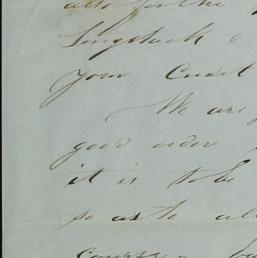 also for the
Your Credit
We are
good order
it is to be
so as to al
course -